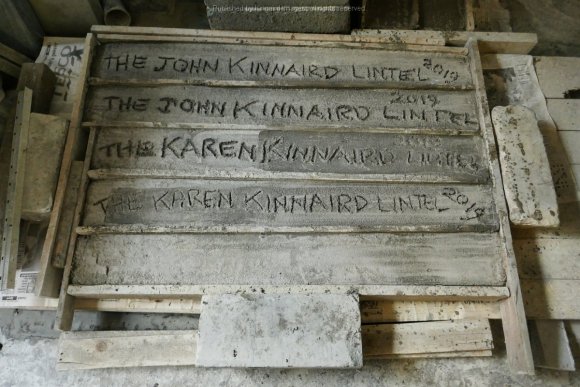 THE JOHN KINNAIRD LINTEL 2019
THE JOHN KINNAIRD LINTEL 2019
THE KAREN KINNAIRD LINTEL
THE KAREN KINNAIRD LINTEL 2019